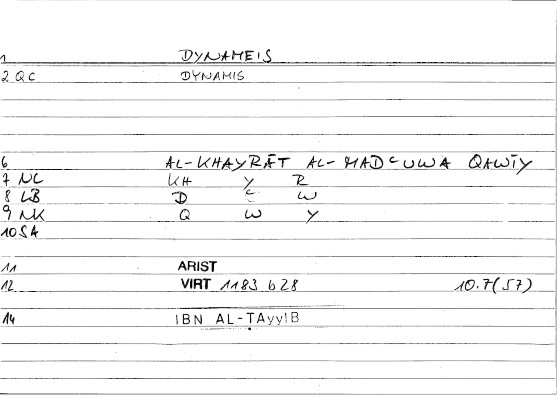 1 DYNAMEIS
2 QC DYNAMIS
6 AL-KHAYRĀT AL-MADᶜUWA QAWĪY
7 NC KH Y R
8 LB D ᶜ W
9 NK Q W Y
10 SA
11 ARIST
12 VIRT 1183 b 28 10.7(57)
14 IBN AL-TAyyIB